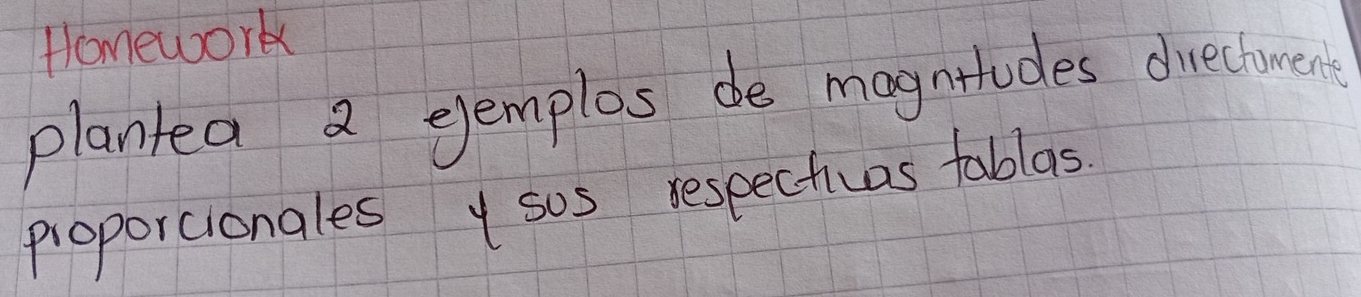 Homework
plantea 2 ejemplos de magnitudes directamente
proporcionales y sus respectivas tablas.